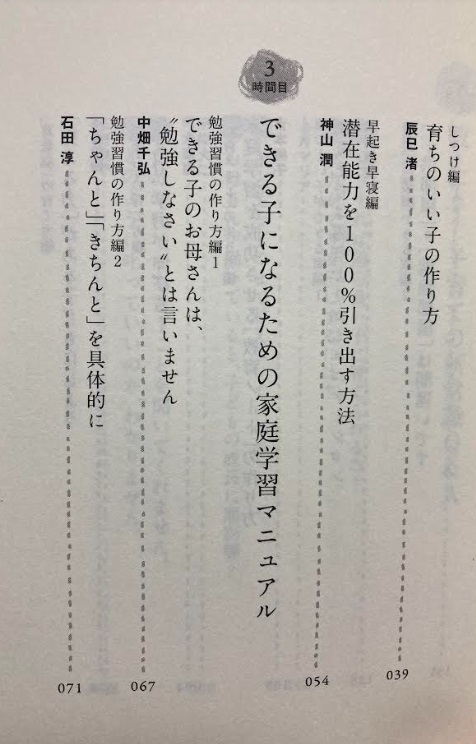 しつけ編
育ちのいい子の作り方
辰巳 渚 039
早起き早寝編
潜在能力を100%引き出す方法
神山 潤 054
3
時間目
できる子になるための家庭学習マニュアル
勉強習慣の作り方編1
できる子のお母さんは、
〝勉強しなさい〟とは言いません
中畑千弘 067
勉強習慣の作り方編2
「ちゃんと」「きちんと」を具体的に
石田 淳 071